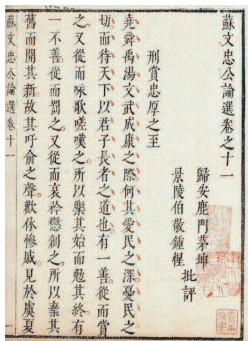 蘇文忠公論選卷之十一
歸安鹿門茅坤
景陵伯敬鍾惺
批評
刑賞忠厚之至
堯舜禹湯文武成康之際何其愛民之深憂民之
切而待天下以君子長者之道也有一善從而賞
之又從而咏歌嗟嘆之所以樂其始而勉其終有
一不善從而罰之又從而哀矜懲創之所以棄其
舊而開其新故其吁俞之聲歡休慘戚見於虞夏
蘇文忠公論選卷十一